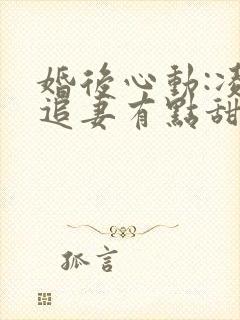 婚後心動:凌
追妻有點甜
孤言